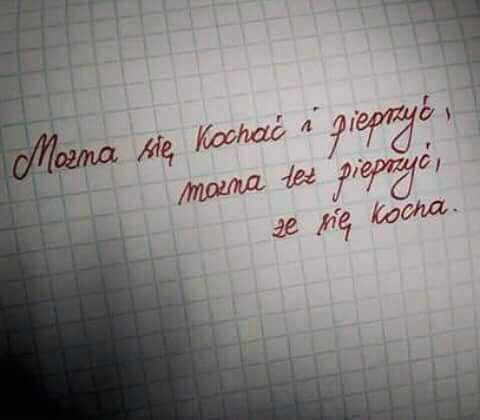 Można się kochać i pieprzyć,
można też pieprzyć,
że się kocha.